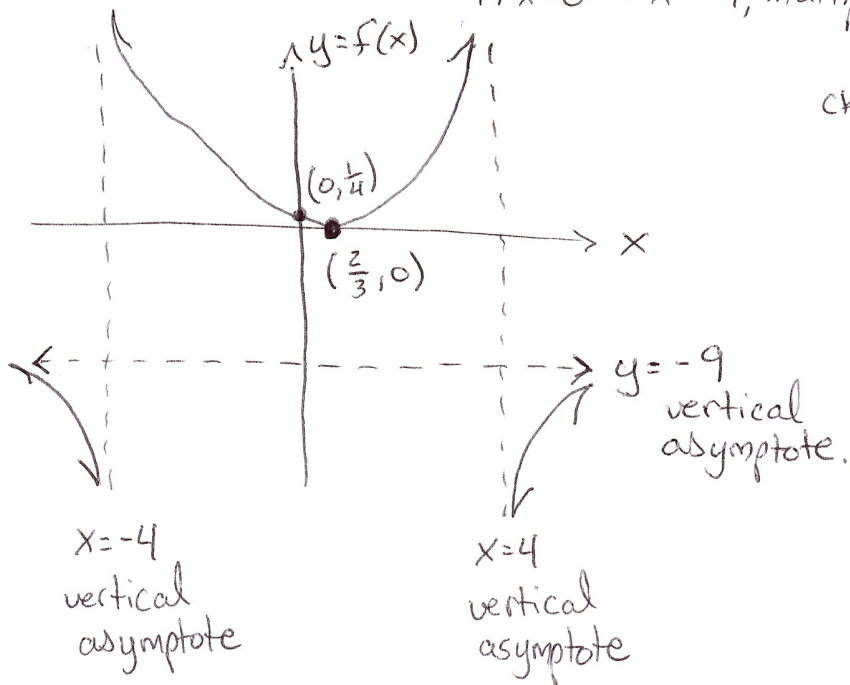 y=f(x)
(0,1/4)
x
(2/3,0)
y=-9
vertical
asymptote.
x=-4
vertical
asymptote
x=4
vertical
asymptote